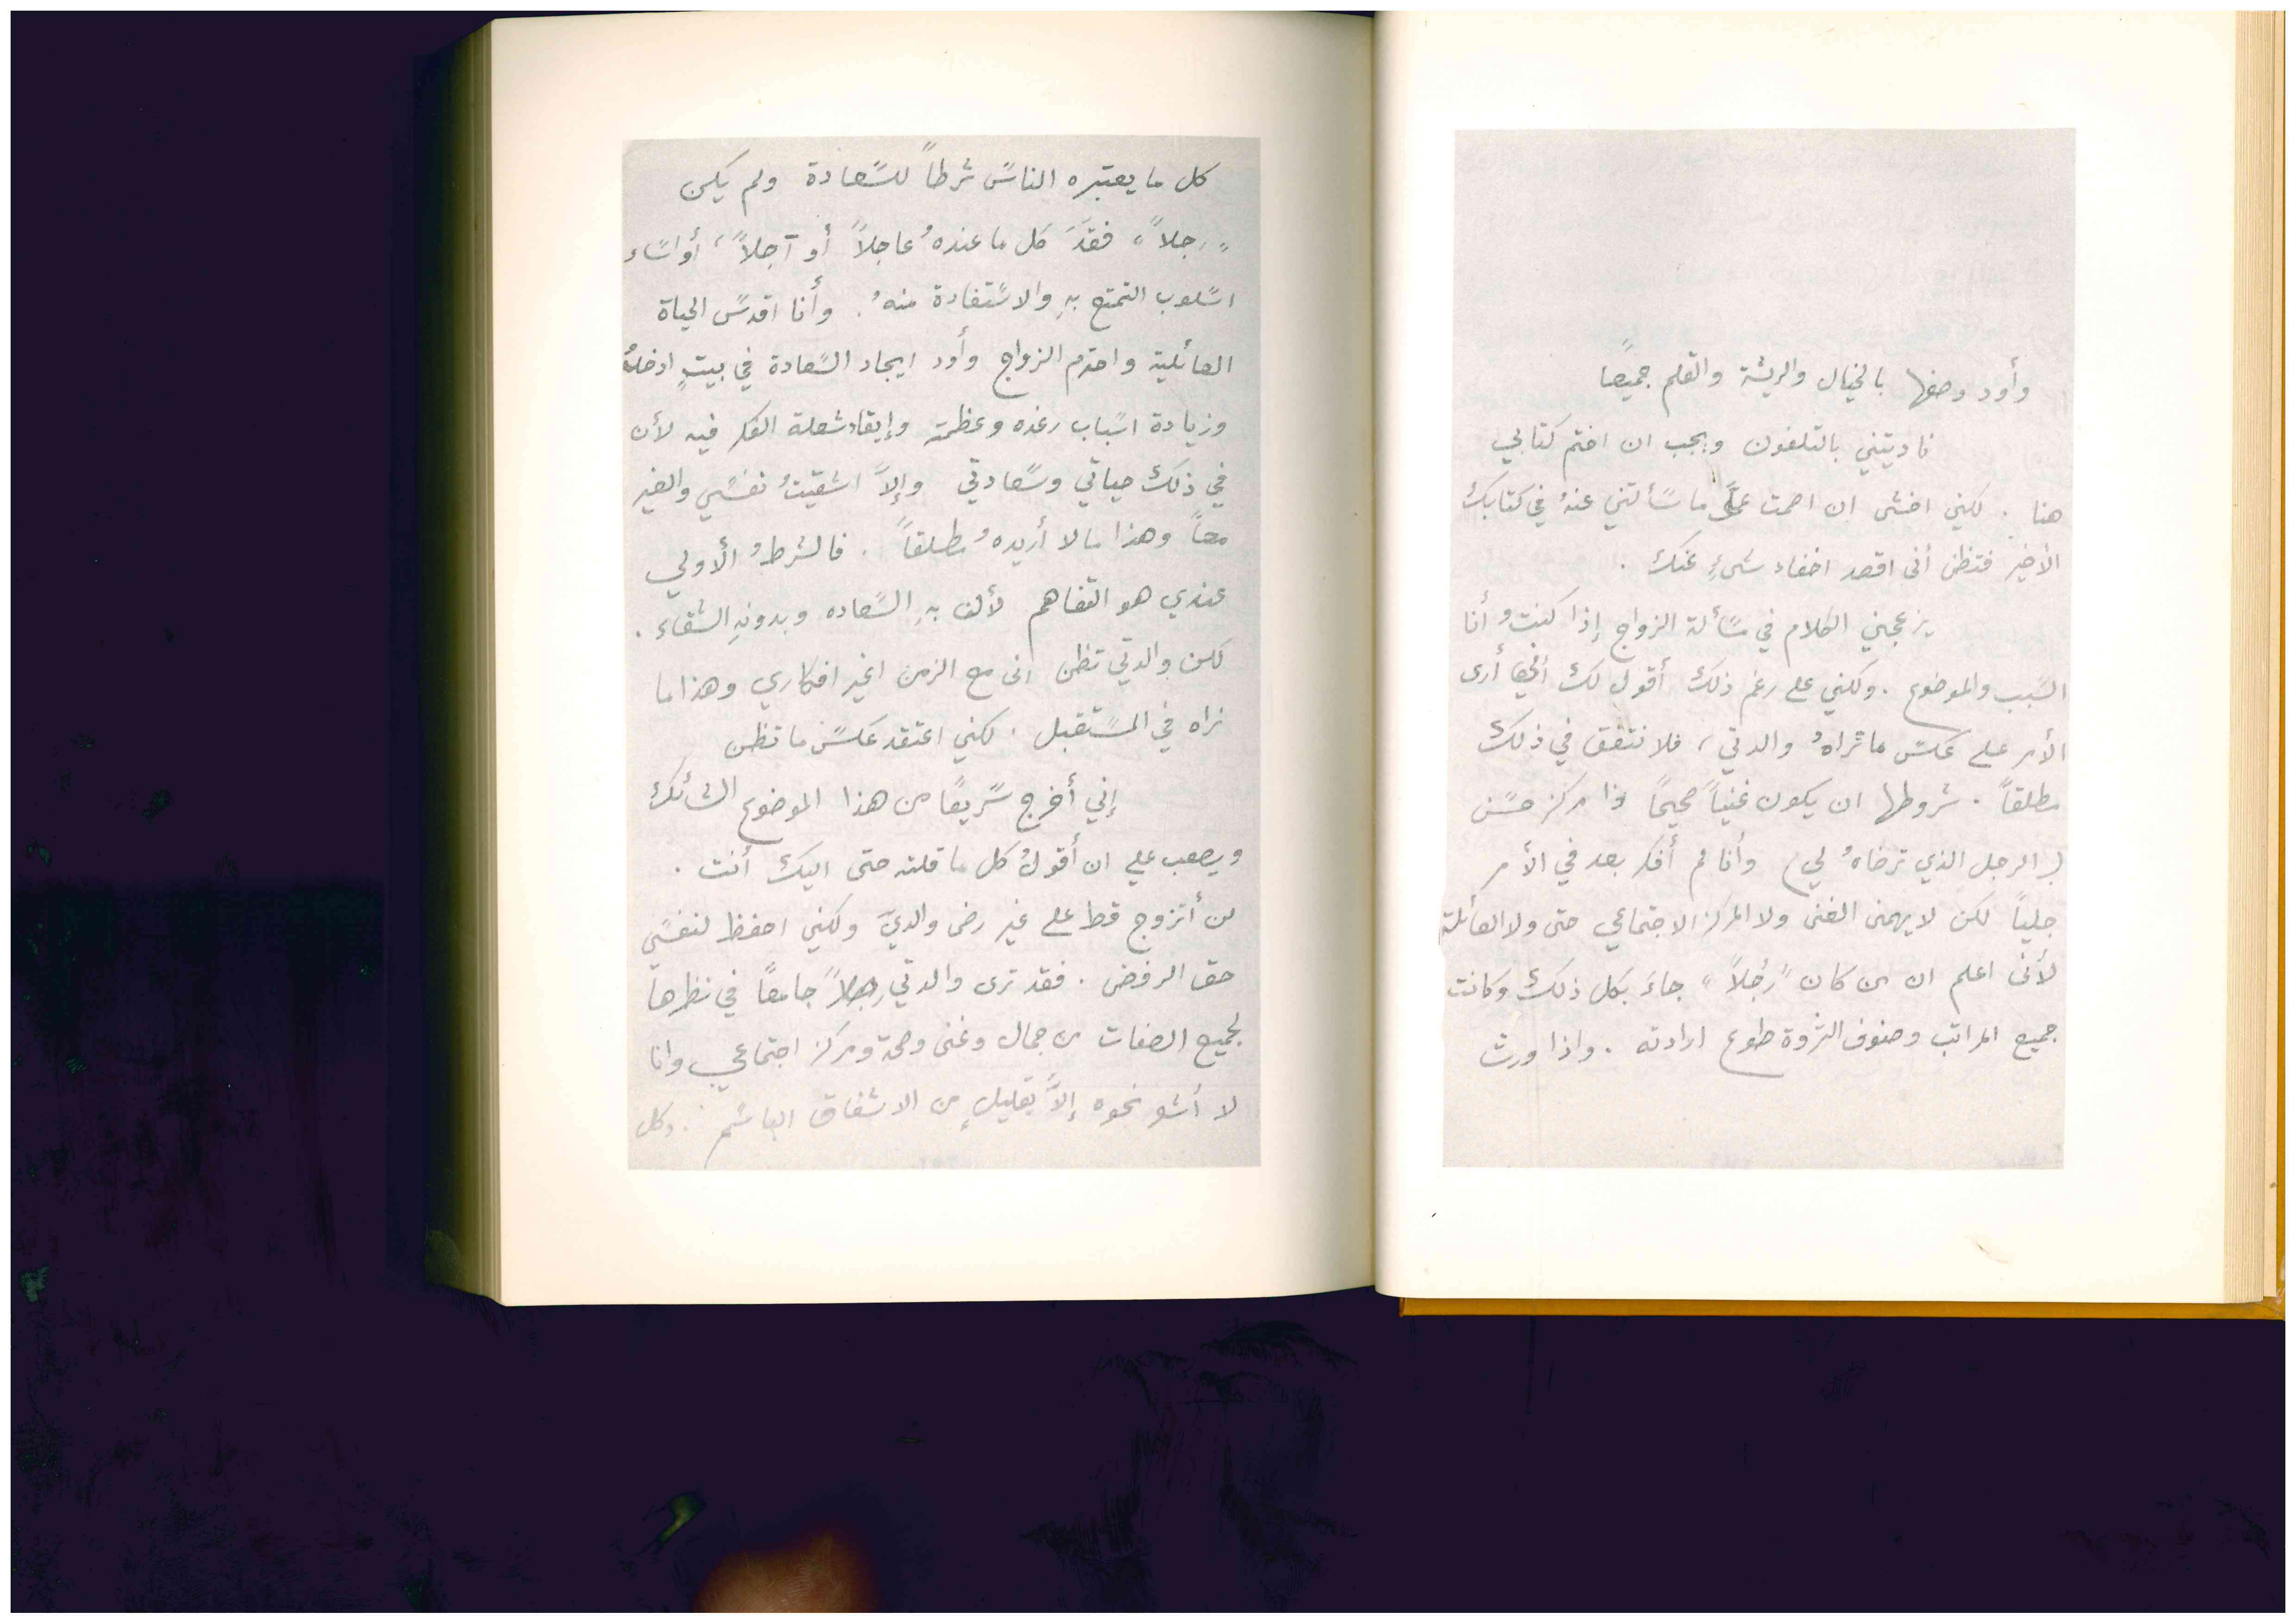 وأود وصفها بالخيال والريشة والقلم جميعا
ناديتني بالتلفون ويجب ان اختم كتابي
هنا . لكني اخشى ان اصمت عمَّا سألتني عنهُ في كتابك
الأخير فتظن أنى اقصد اخفاء شيءٍ عنك .
يزعجني الكلام في مسألة الزواج إذا كنتُ أنا
السبب والموضوع . ولكني على رغم ذلك أقول لك أرى
الأمر على عكس ما تراهُ والدتي ، فلا نتفق في ذلك
مطلقاً . شروطها ان يكون غنياً صحيحاً ذا مركز حسن
( الرجل الذي ترضاهُ لي ) وأنا لم أفكر بعد في الأمر
جلياً لكن لا يهمنى الغنى ولا المركز الاجتماعي حتى ولا العائلة
لأنى اعلم ان من كان "رجُلاً" جاءَ بكل ذلك وكانت
جميع المراتب وصنوف الثروة طوع ارادته . واذا ورث
كل ما يعتبره الناس شرطاً للسعادة ولم يكن
"رجلاً" فقدَ كل ما عندهُ عاجلاً أو آجلاً ، أو اساء
اسلوب التمتع بهِ والاستفادة منهُ . وأنا اقدس الحياة
العائلية واحترم الزواج وأود ايجاد السعادة في بيتٍ ادخلهُ
وزيادة اسباب رغده وعظمته وإيقاد شعلة الفكر فيه لأن
في ذلك حياتي وسعادتي وإلاَّ اشقيتُ نفسي والغير
معاً وهذا ما لا أريدهُ مطلقاً . فالشرطُ الأولي
عندي هو التفاهم لأن بهِ السعاده وبدونهِ الشقاء .
لكن والدتي تظن انى مع الزمن اغير افكاري وهذا ما
نراه في المستقبل . لكني اعتقد عكس ما تظن
إني أخرج سريعًا من هذا الموضوع الشائك
ويصعب علي ان أقولُ كل ما قلته حتى اليك أنت .
لن أتزوج قط على غير رضى والديَّ ولكني احفظ لنفسي
حق الرفض . فقد ترى والدتي رجلاً جامعاً في نظرها
لجميع الصفات من جمال وغنى وصحة ومركز اجتماعي وانا
لا أشعر نحوه إلاَّ بقليلٍ من الاشفاق الباسم . وكل